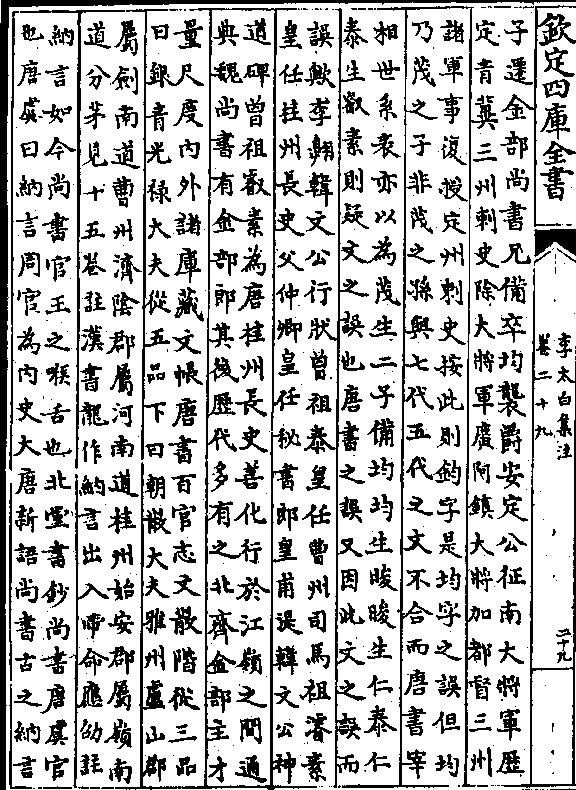 欽定四庫全書
李太白集注
卷二十九
二十九
子遷金部尚書兄備卒均襲爵安定公征南大將軍歷
定青冀三州刺史除大將軍廣阿鎮大將加都督三州
諸軍事復授定州刺史按此則鈞字是均字之誤但均
乃茂之子非茂之孫與七代五代之文不合而唐書宰
相世系表亦以為茂生二子備均均生晙晙生仁泰仁
泰生叡素則疑文之誤也唐書之誤又因此文之誤而
誤歟李翺韓文公行狀曾祖泰皇任曹州司馬祖濬素
皇任桂州長史父仲卿皇任秘書郎皇甫湜韓文公神
道碑曾祖叡素為唐桂州長史善化行於江嶺之間通
典魏尚書有金部郎其後歷代多有之北齊金部主才
量尺度內外諸庫藏文帳唐書百官志文散階從三品
曰銀青光祿大夫從五品下曰朝散大夫雅州盧山郡
屬劍南道曹州濟陰郡屬河南道桂州始安郡屬嶺南
道分茅見十五卷註漢書龍作納言出入帝命應劭註
納言如今尚書官王之喉舌也北堂書鈔尚書唐虞官
也唐虞曰納言周官為內史大唐新語尚書古之納言